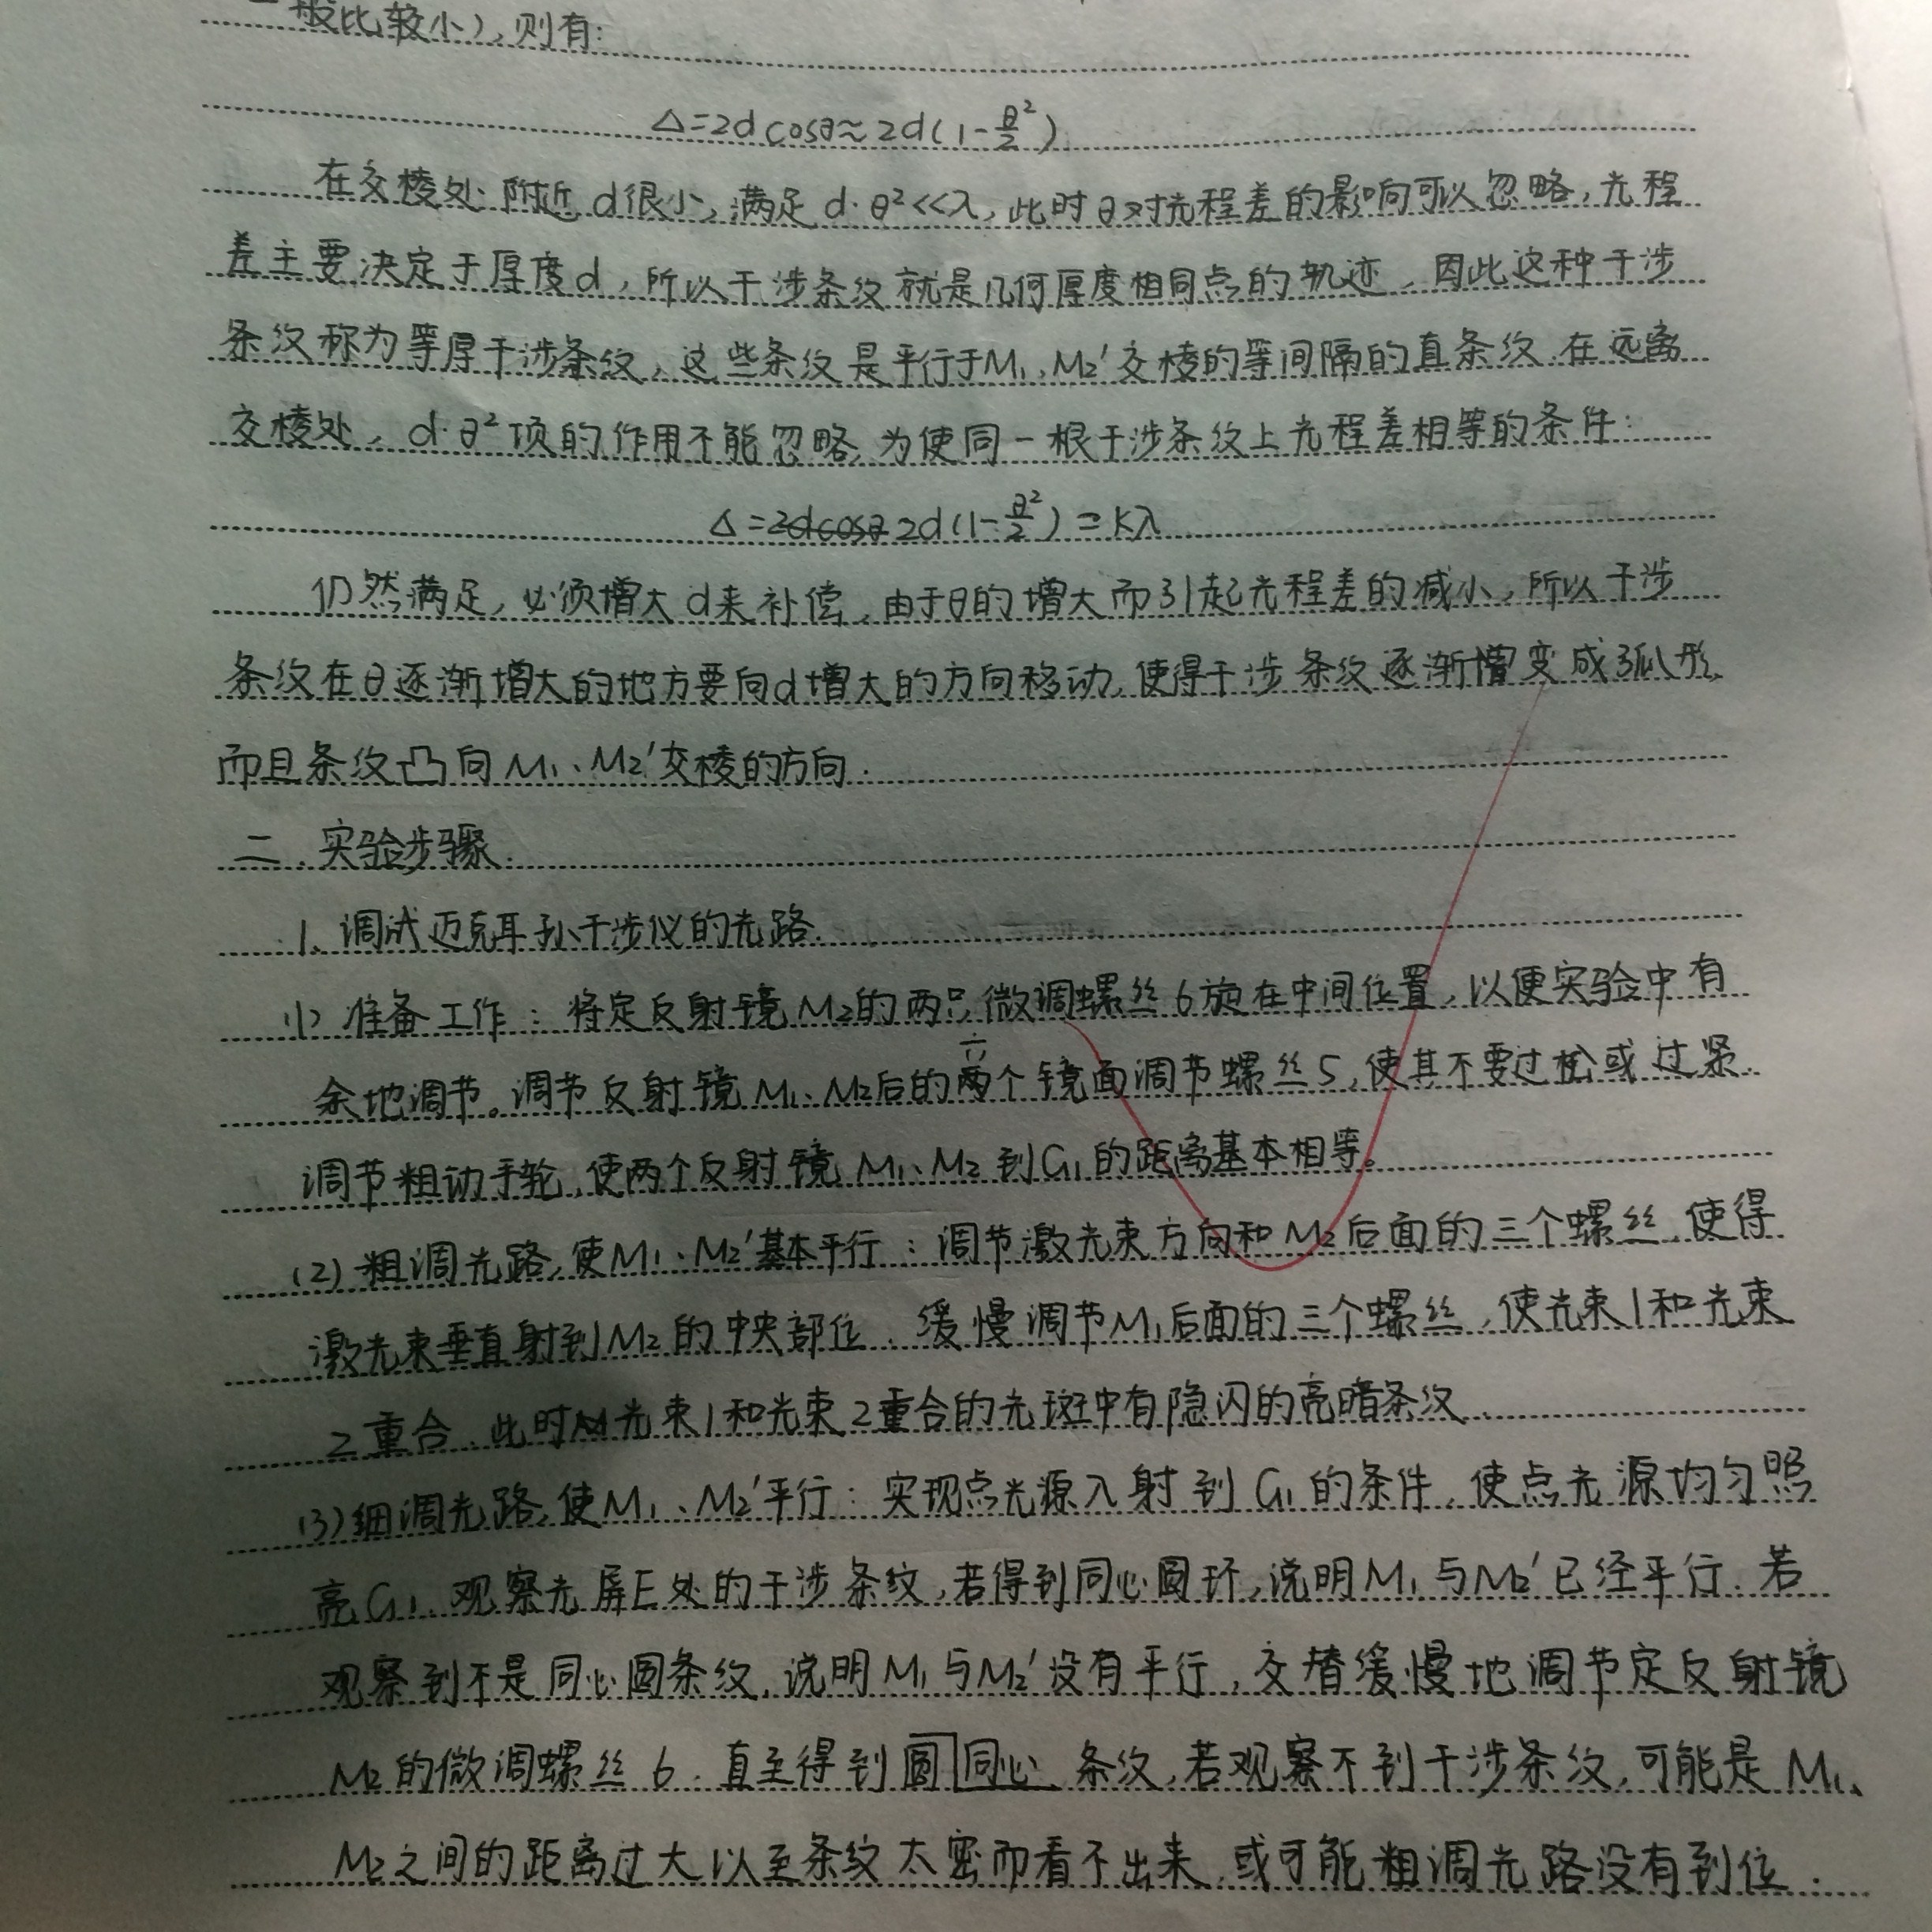 般比较小),则有:
Δ=2dcosθ≈2d(1-θ²/2)
在交棱处附近d很小,满足d·θ²<<λ,此时θ对光程差的影响可以忽略,光程
差主要决定于厚度d,所以干涉条纹就是几何厚度相同点的轨迹,因此这种干涉
条纹称为等厚干涉条纹,这些条纹是平行于M₁、M₂'交棱的等间隔的直条纹.在远离
交棱处,d·θ²项的作用不能忽略,为使同一根干涉条纹上光程差相等的条件:
Δ=2dcosθ 2d(1-θ²/2)=kλ
仍然满足,必须增大d来补偿,由于θ的增大而引起光程差的减小,所以干涉
条纹在θ逐渐增大的地方要向d增大的方向移动,使得干涉条纹逐渐变成弧形,
而且条纹凸向M₁、M₂'交棱的方向.
二.实验步骤.
1.调试迈克耳孙干涉仪的光路.
(1)准备工作:将定反射镜M₂的两只微调螺丝6旋在中间位置,以便实验中有
余地调节。调节反射镜M₁、M₂后的三个镜面调节螺丝5,使其不要过松或过紧.
调节粗动手轮,使两个反射镜M₁、M₂到G₁的距离基本相等。
(2)粗调光路,使M₁、M₂'基本平行:调节激光束方向和M₂后面的三个螺丝,使得
激光束垂直射到M₂的中央部位.缓慢调节M₁后面的三个螺丝,使光束1和光束
2重合.此时光束1和光束2重合的光斑中有隐闪的亮暗条纹.
(3)细调光路,使M₁、M₂'平行:实现点光源入射到G₁的条件,使点光源均匀照
亮G₁.观察光屏E处的干涉条纹,若得到同心圆环,说明M₁与M₂'已经平行.若
观察到不是同心圆条纹,说明M₁与M₂'没有平行,交替缓慢地调节定反射镜
M₂的微调螺丝6.直至得到圆同心条纹,若观察不到干涉条纹,可能是M₁、
M₂之间的距离过大以至条纹太密而看不出来,或可能粗调光路没有到位.